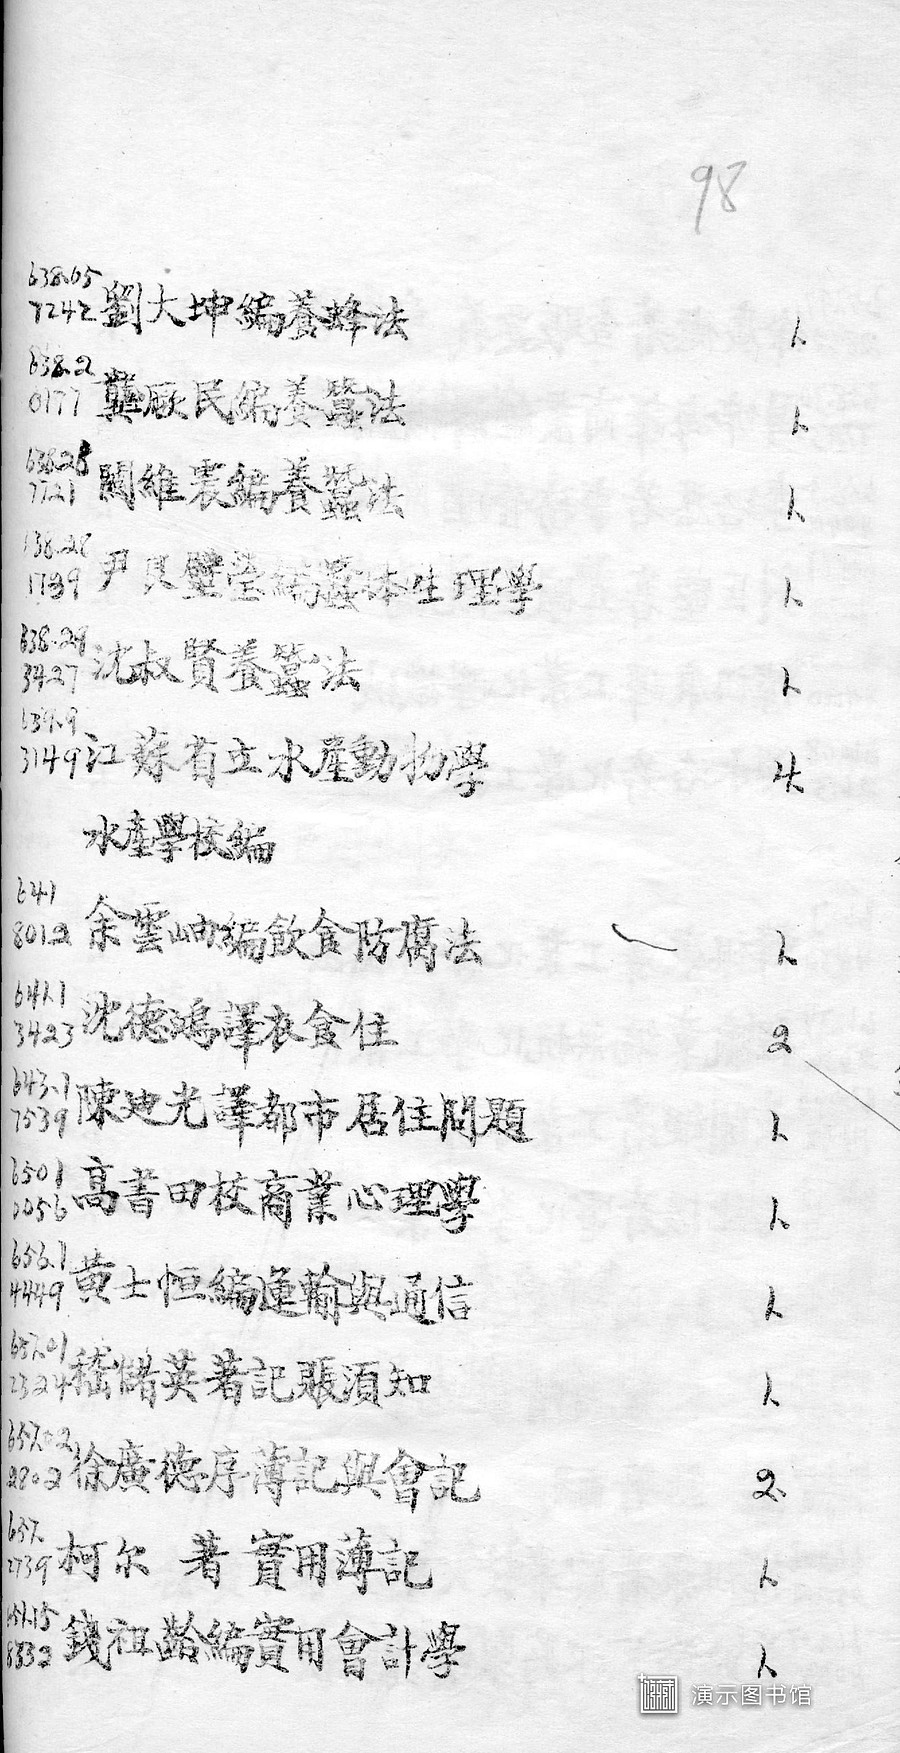 98
638.05
7242 劉大坤編養蜂法 1.
638.2
0177 龔厥民編養蠶法 1.
638.28
7721 關維震編養蠶法 1.
138.28
1739 尹良瑩編蠶体生理學 1.
638.29
3427 沈叔賢養蠶法 1.
639.9
3149 江蘇省立水產動物學 4.
水產學校編
641
8012 余雲岫編飲食防腐法 1.
641.1
3423 沈德鴻譯衣食住 2
643.1
7539 陳迪光譯都市居住問題 1.
6501
0056 高書田校商業心理學 1.
656.1
4449 黃士恒編運輸與通信 1.
657.01
2324 嵇惜英著記賬須知 1.
657.02
2802 徐廣德序薄記與會記 2.
657.
1739 柯尔 著 實用薄記 1.
51.15
8332 錢祖齡編實用會計學 1.
演示图书馆